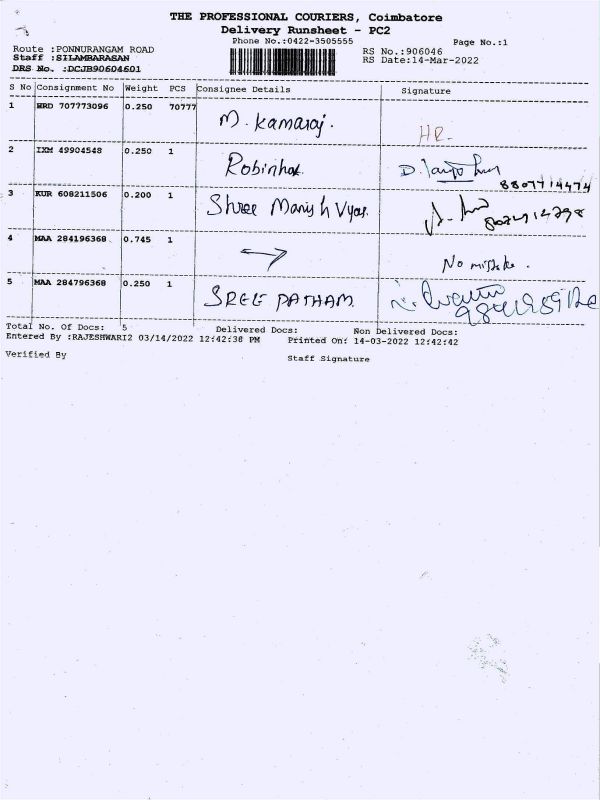 THE PROFESSIONAL COURIERS, Coimbatore
Delivery Runsheet - PC2
Phone No.:0422-3505555 Page No.:1
Route :PONNURANGAM ROAD RS No.:906046
Staff :SILAMBARASAN RS Date:14-Mar-2022
DRS No. :DCJB90604601
S No Consignment No Weight PCS Consignee Details Signature
1 HRD 707773096 0.250 70777 M. Kamaraj. HR-
2 IXM 49904548 0.250 1 D.
8807714474
3 KUR 608211506 0.200 1 Shree Manish Vyas.
4 MAA 284196368 0.745 1 → No mistake.
5 MAA 284796368 0.250 1 SREE PATHAM.
Total No. Of Docs: 5 Delivered Docs: Non Delivered Docs:
Entered By :RAJESHWARI2 03/14/2022 12:42:38 PM Printed On: 14-03-2022 12:42:42
Verified By Staff Signature